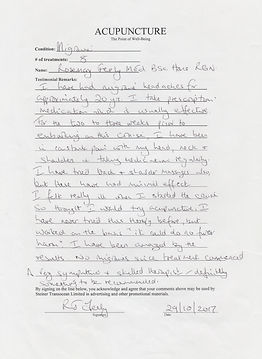 ACUPUNCTURE
The Point of Well-Being
Condition: Migraine
# of treatments: 8
Name: Rosemary Feely MEd BSc Hons RGN
Testimonial Remarks:
I have had migraine headaches for
approximately 20 yrs. I take prescription
medication which is usually effective
For the two to three weeks prior to
embarking on this cruise I have been
in constant pain with my head, neck &
shoulders & taking medicines regularly.
I have tried back & shoulder massages also
but these have had minimal effect
I felt really ill when I started the cruise
so thought I would try acupuncture. I
have never tried this therapy before, but
worked on the basis "it could do no further
harm" I have been amazed by the
results No migraines since treatment commenced
A very sympathetic & skilled therapist – definitely
something to be recommended.
By signing on the line below, you acknowledge and agree that your comments above may be used by
Steiner Transocean Limited in advertising and other promotional materials.
29/10/2017
Signature
Date